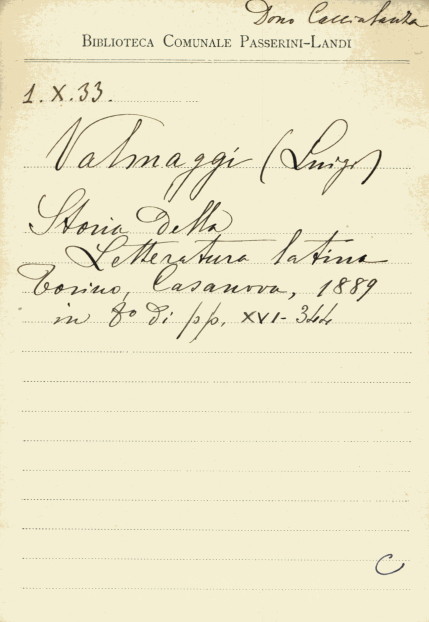 Dono Cacciatanza
BIBLIOTECA COMUNALE PASSERINI-LANDI
1.X.33.
Valmaggi (Luigi)
Storia della
Letteratura latina
Torino, Casanova, 1889
in 8° di pp. XVI-344
C